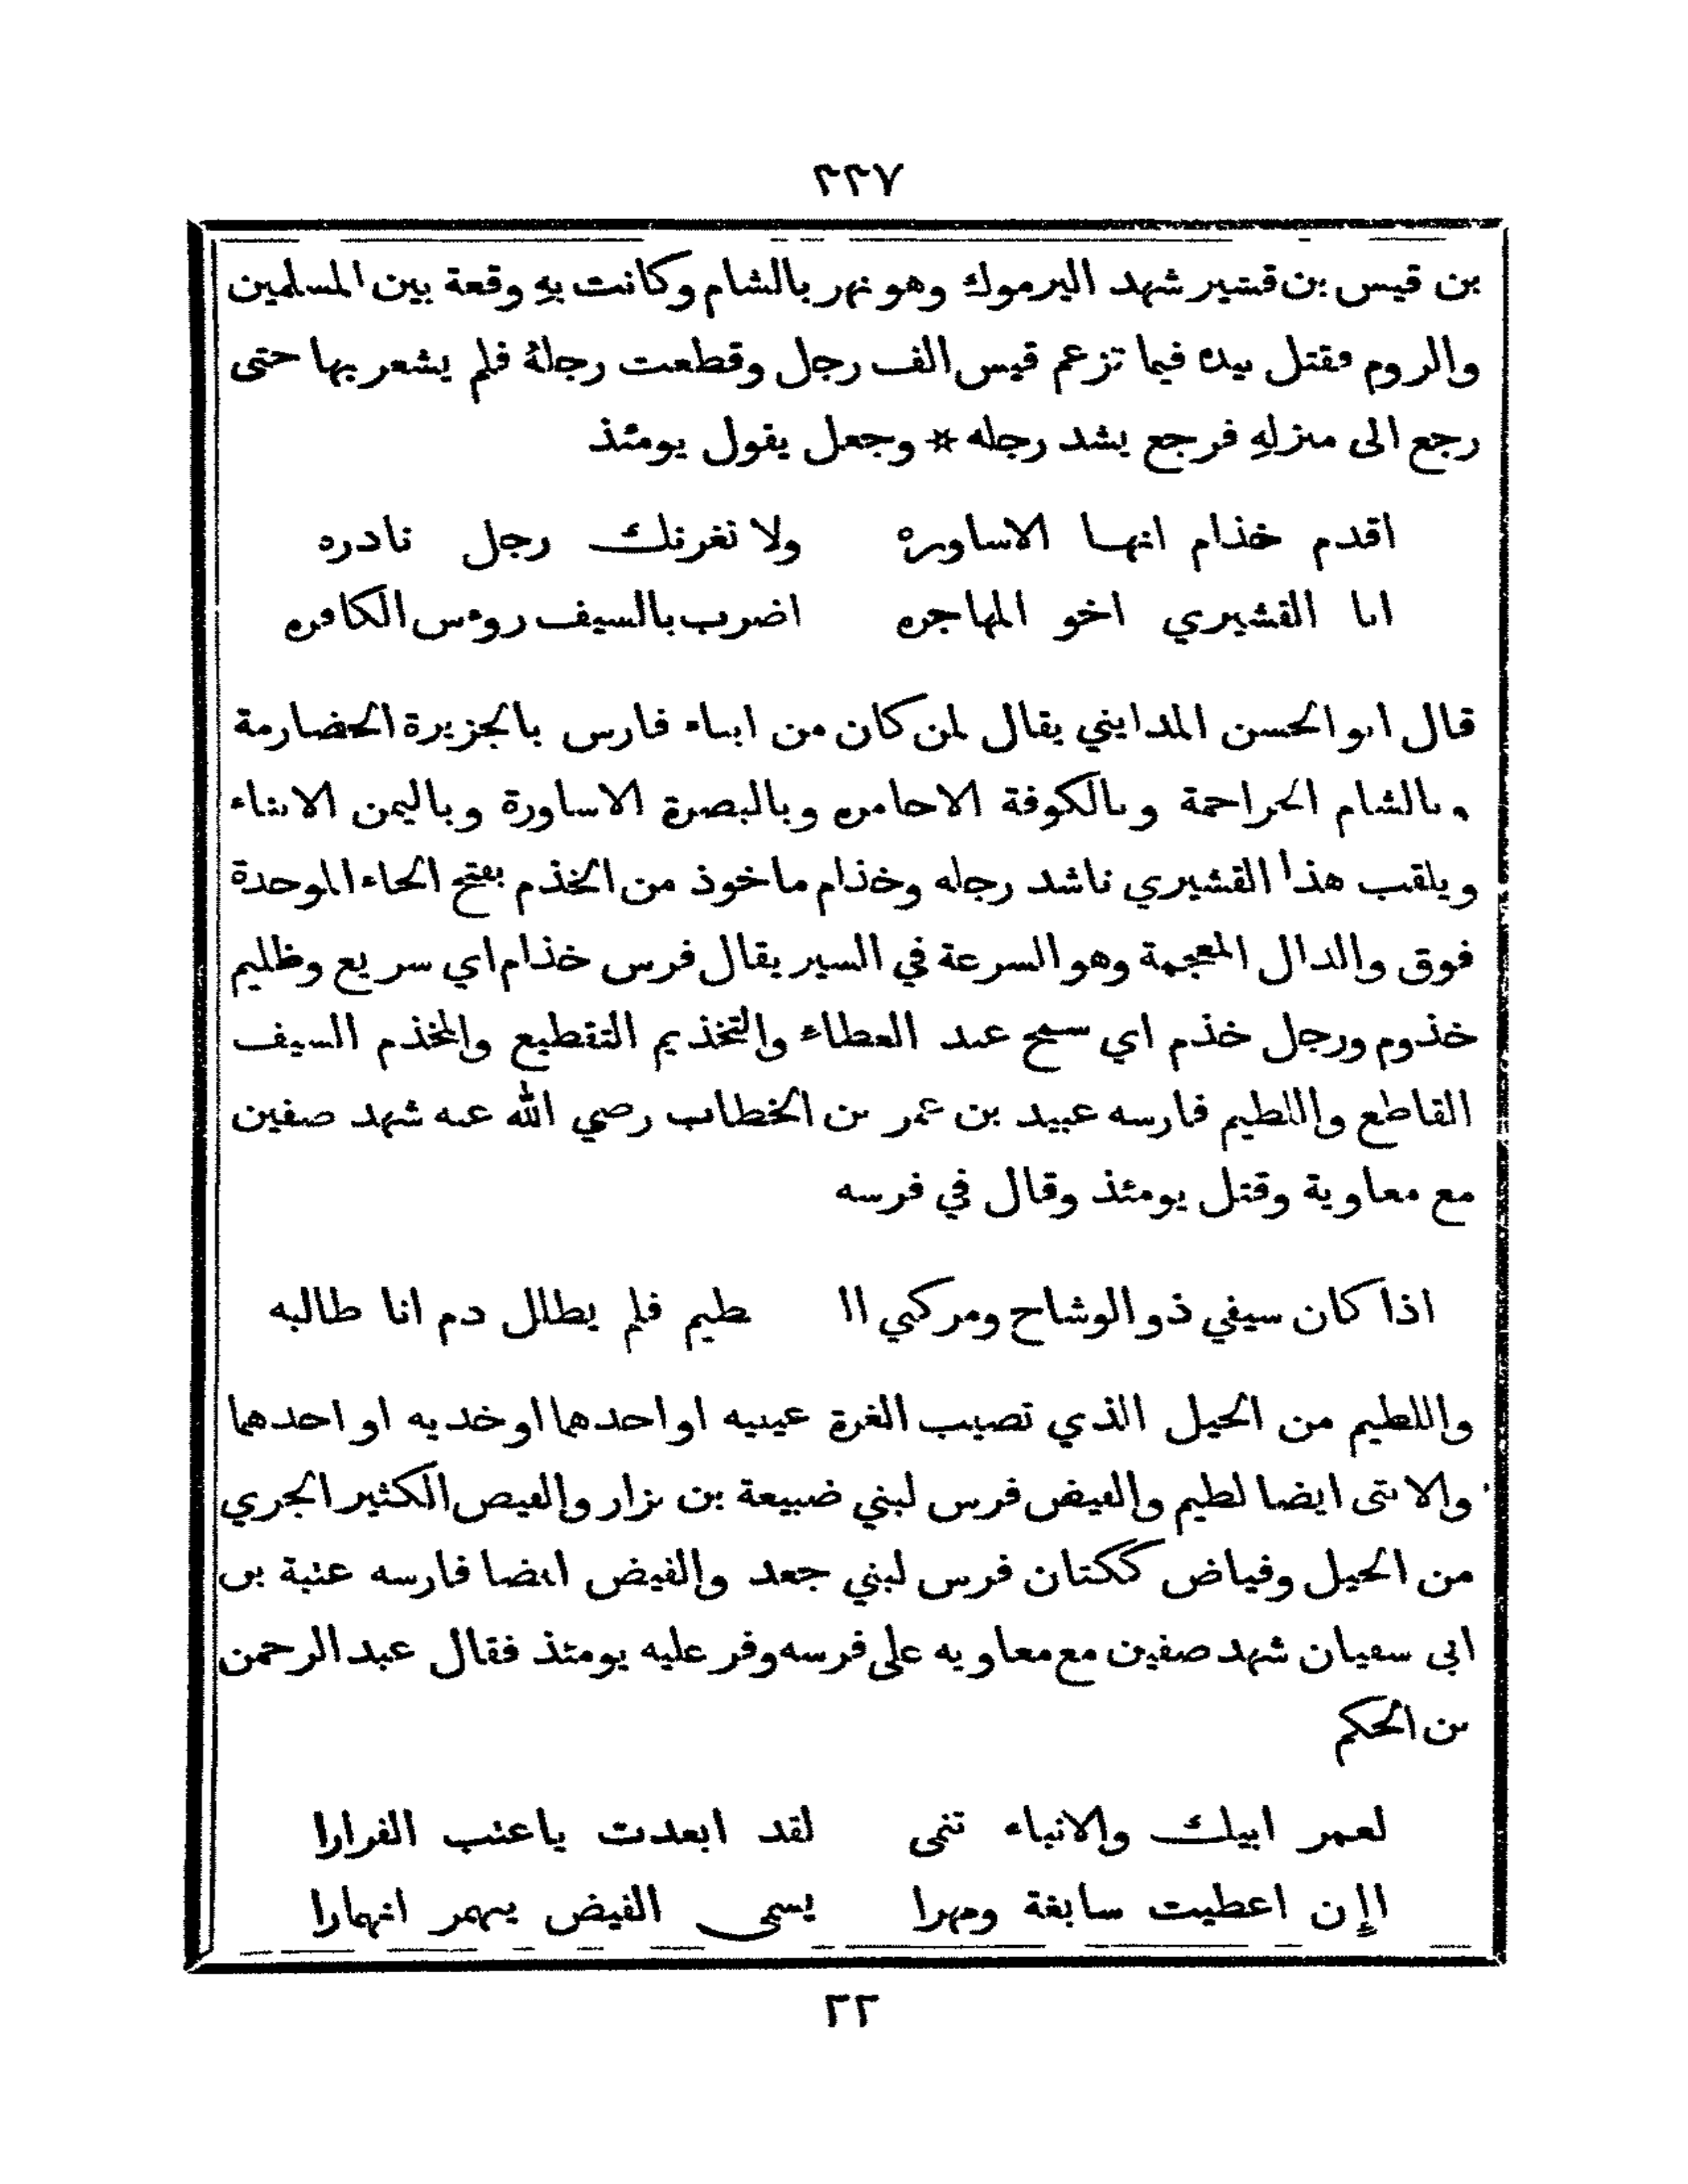 ٢٢٧
بن قيس بن قشير شهد اليرموك وهو نهر بالشام وكانت بهِ وقعة بين المسلمين
والروم فقتل بيده فيما تزعم قيس الف رجل وقطعت رجلهُ فلم يشعر بها حتى
رجع الى منزلهِ فرجع يشد رجله * وجعل يقول يومئذ
اقدم خذام انها الاساوره ولا تغرنك رجل نادره
انا القشيري اخو المهاجره اضرب بالسيف روءس الكافره
قال ابو الحسن المدايني يقال لمن كان من ابناء فارس بالجزيرة الحضارمة
وبالشام الجراحمة وبالكوفة الاحامره وبالبصرة الاساورة وباليمن الابناء
ويلقب هذا القشيري ناشد رجله وخذام ماخوذ من الخذم بفتح الخاء الموحدة
فوق والدال المعجمة وهو السرعة في السير يقال فرس خذام اي سريع وظليم
خذوم ورجل خذم اي سمح عند العطاء والتخذيم التقطيع والمخذم السيف
القاطع واللطيم فارسه عبيد بن عمر بن الخطاب رضي الله عنه شهد صفين
مع معاوية وقتل يومئذ وقال في فرسه
اذا كان سيفي ذو الوشاح ومركبي ال لطيم فلم يطلل دم انا طالبه
واللطيم من الخيل الذي تصيب الغرة عينيه او احدهما او خديه او احدهما
والانثى ايضا لطيم والفيض فرس لبني ضبيعة بن نزار والفيض الكثير الجري
من الخيل وفياض ككتان فرس لبني جعد والفيض ايضا فارسه عتبة بن
ابي سفيان شهد صفين مع معاويه على فرسه وفر عليه يومئذ فقال عبد الرحمن
بن الحكم
لعمر ابيك والانباء تنمى لقد ابعدت يا عتب الفرارا
اإن اعطيت سابغة ومهرا يسمى الفيض ينهمر انهمارا
٣٢